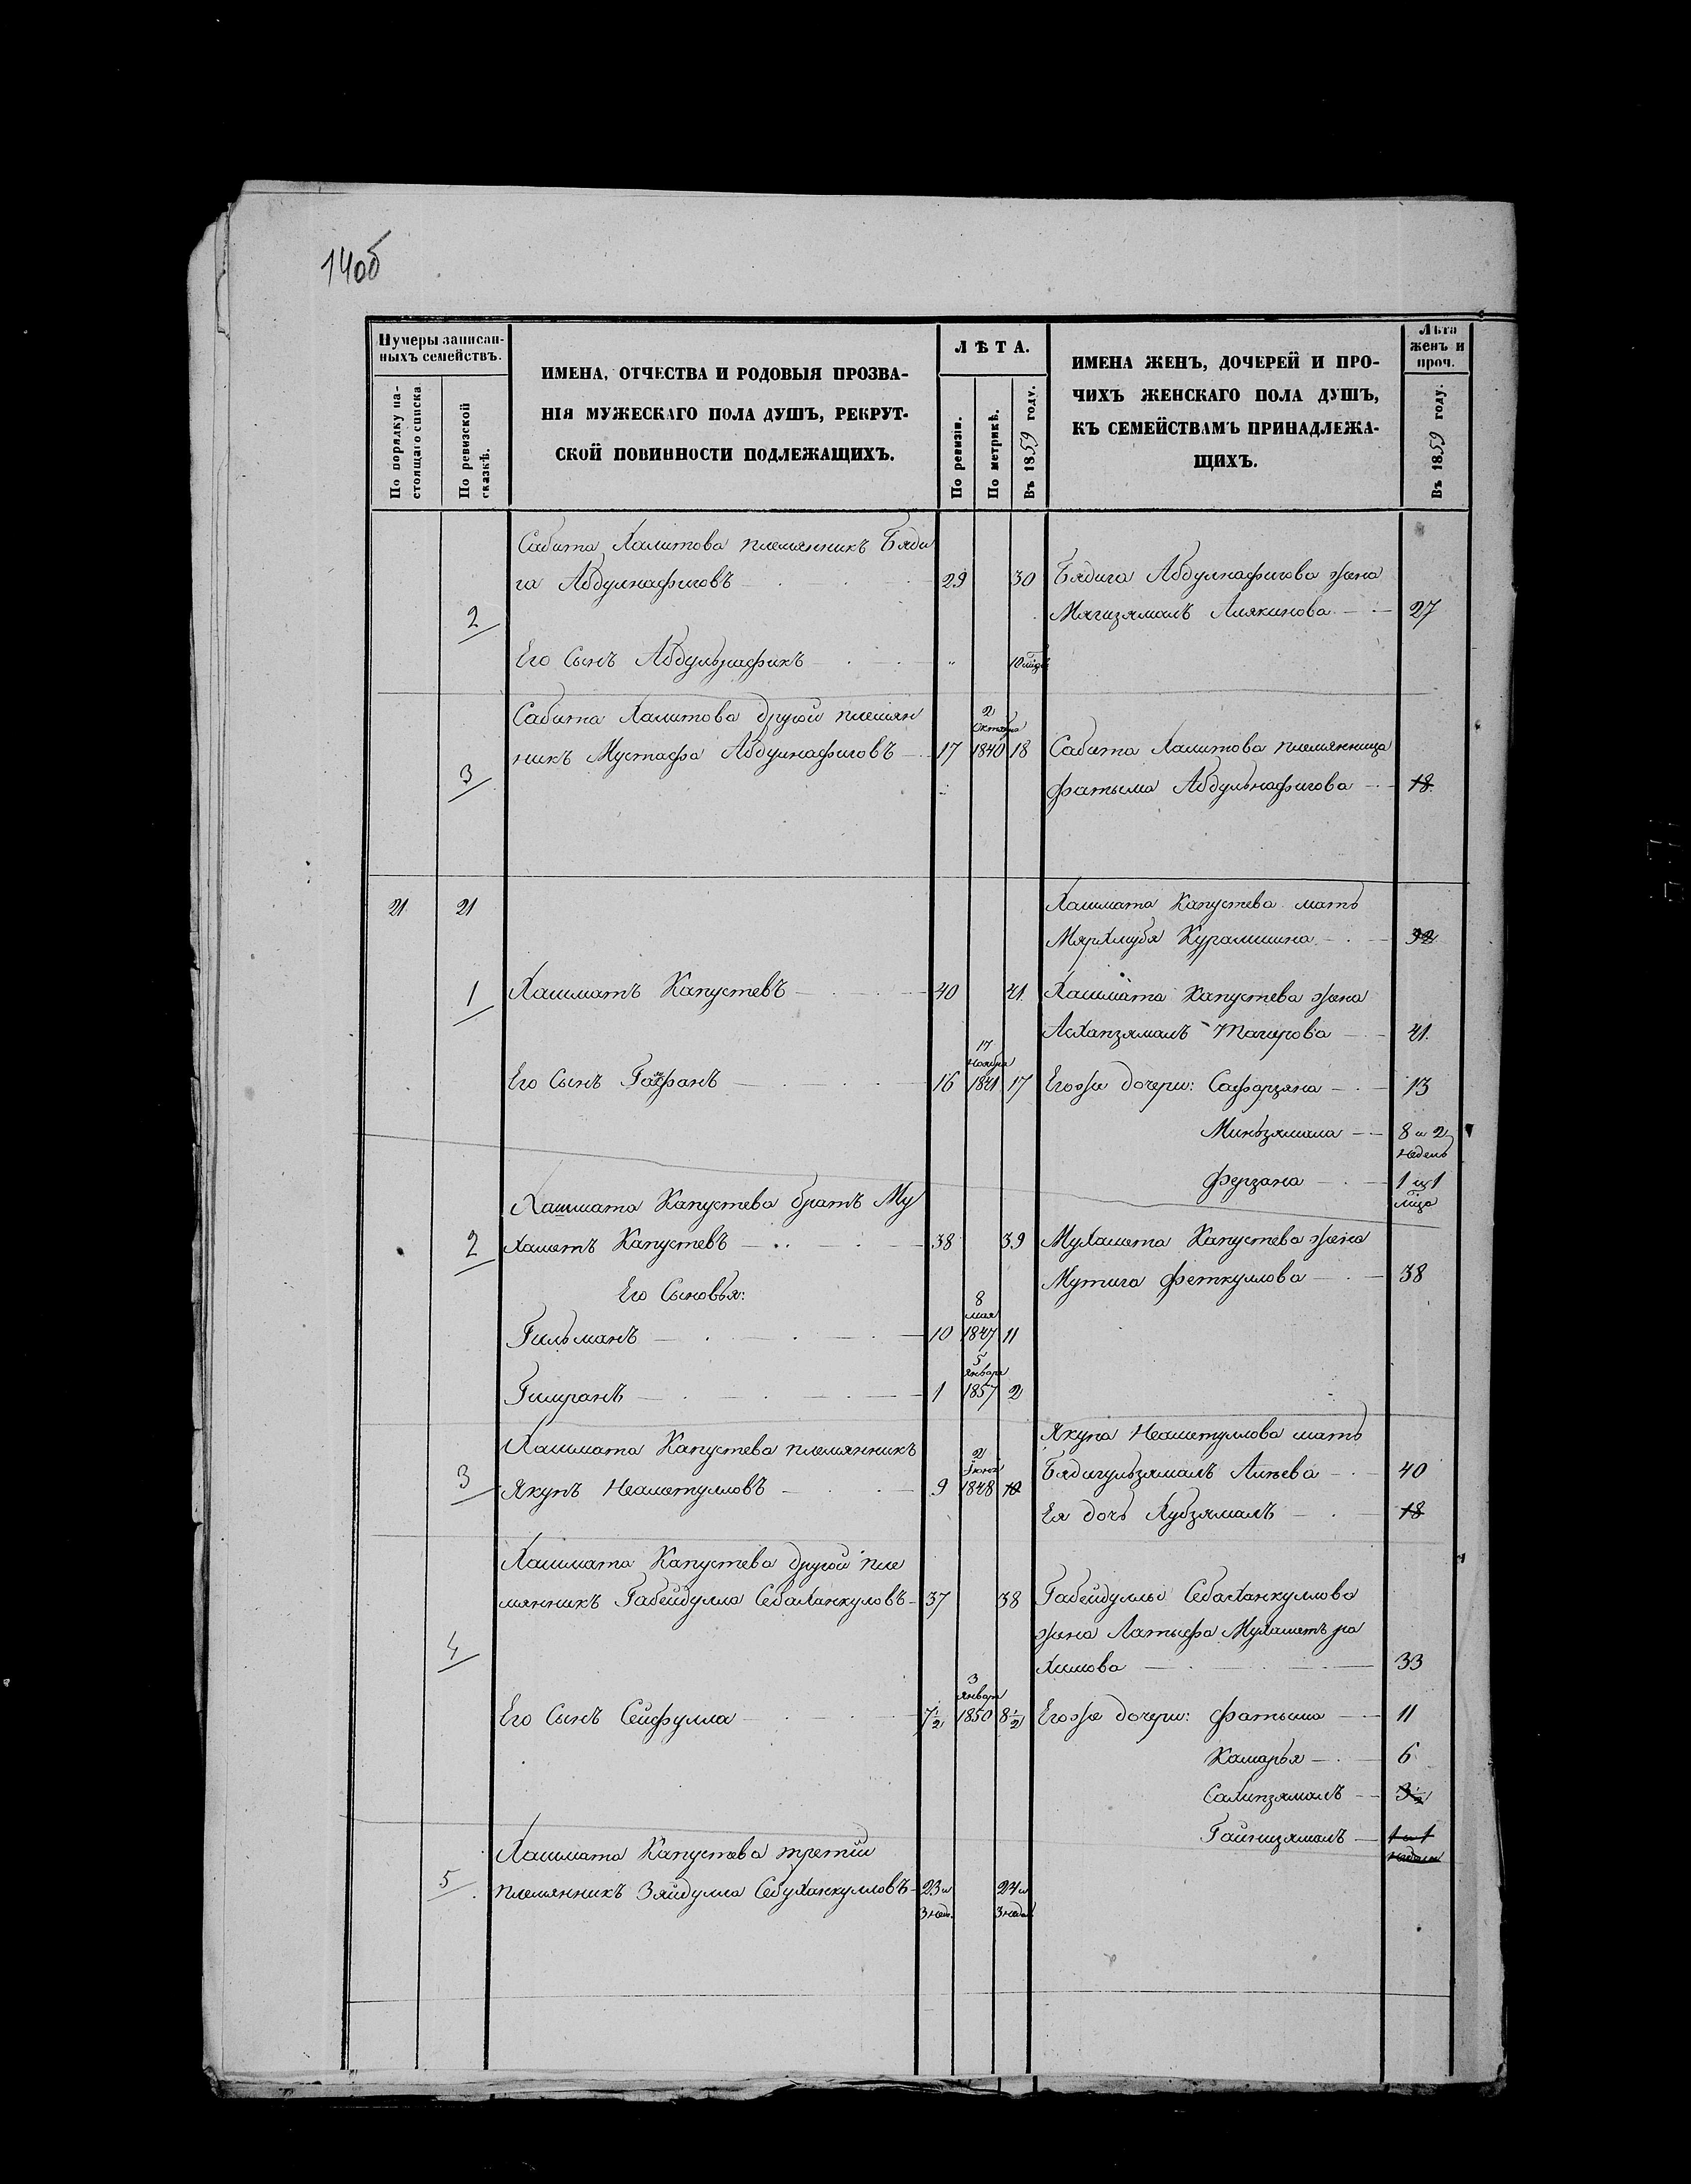 14об
Нумеры записан-
ныхъ семействъ.
По порядку на-
столщаго списка
По ревизской
сказкѣ.
ИМЕНА, ОТЧЕСТВА И РОДОВЫЯ ПРОЗВА-
НІЯ МУЖЕСКАГО ПОЛА ДУШЪ, РЕКРУТ-
СКОЙ ПОВИННОСТИ ПОДЛЕЖАЩИХЪ.
ЛѢТА.
По ревизіи.
По метрикѣ.
Въ 1859 году.
ИМЕНА ЖЕНЪ, ДОЧЕРЕЙ И ПРО-
ЧИХЪ ЖЕНСКАГО ПОЛА ДУШЪ,
КЪ СЕМЕЙСТВАМЪ ПРИНАДЛЕЖА-
ЩИХЪ.
Лѣта
женъ и
проч.
Въ 1859 году.
Сабита Халитова племянникъ Бяди
га Абдулнафиговъ 29 30 Бядига Абдулнафигова жена
2 Мягизямалъ Алякинова 27
Его Сынъ Абдульнафикъ 10
Сабита Халитова другой племян 2
Октября
никъ Мустафа Абдулнафиговъ 17 1840 18 Сабита Халитова племянница
3 фатыма Абдульнафигова 18
21 21 Хашмата Капустева мать
Курамшина
1 Хашматъ Капустевъ 40 41 Хашмата Капустева жена
Асхапзямалъ Тагирова 41
17
Ноября
Его Сынъ 16 1841 17 Егоже дочери: Сафарзяна 13
Миньзямала 8 и 2
недель
Ферзана 1 и 1
Хашмата Капустева братъ Му
2 хаметъ Капустевъ 38 39 Мухамета Капустева жена
Мутига феткуллова 38
Его Сыновья: 8
мая
Гильманъ 10 1847 11
5
января
Гимранъ 1 1857 2
Якупа Неаметуллова мать
Хашмата Капустева племянникъ 2
3 Якупъ Неаметулловъ 9 1848 10 Бядигульзямалъ Алиева 40
Ея дочь Хубзямалъ 18
Хашмата Капустева другой пле
мянникъ Габейдулла Себаханкуловъ 37 38 Габейдуллы Себаханкуллова
4 жена Латыфа Мухаметъ ра
химова 33
3
января
Его Сынъ Сейфулла 7½ 1850 8½ Егоже дочери: фатыма 11
Камарья 6
Салипзямалъ 3½
Гайнизямалъ 1 и 1
недели
Хашмата Капустева третій
5 племянникъ Зяйдулла Себуханкулловъ 23 и 24 и
3 нед. 3 недел